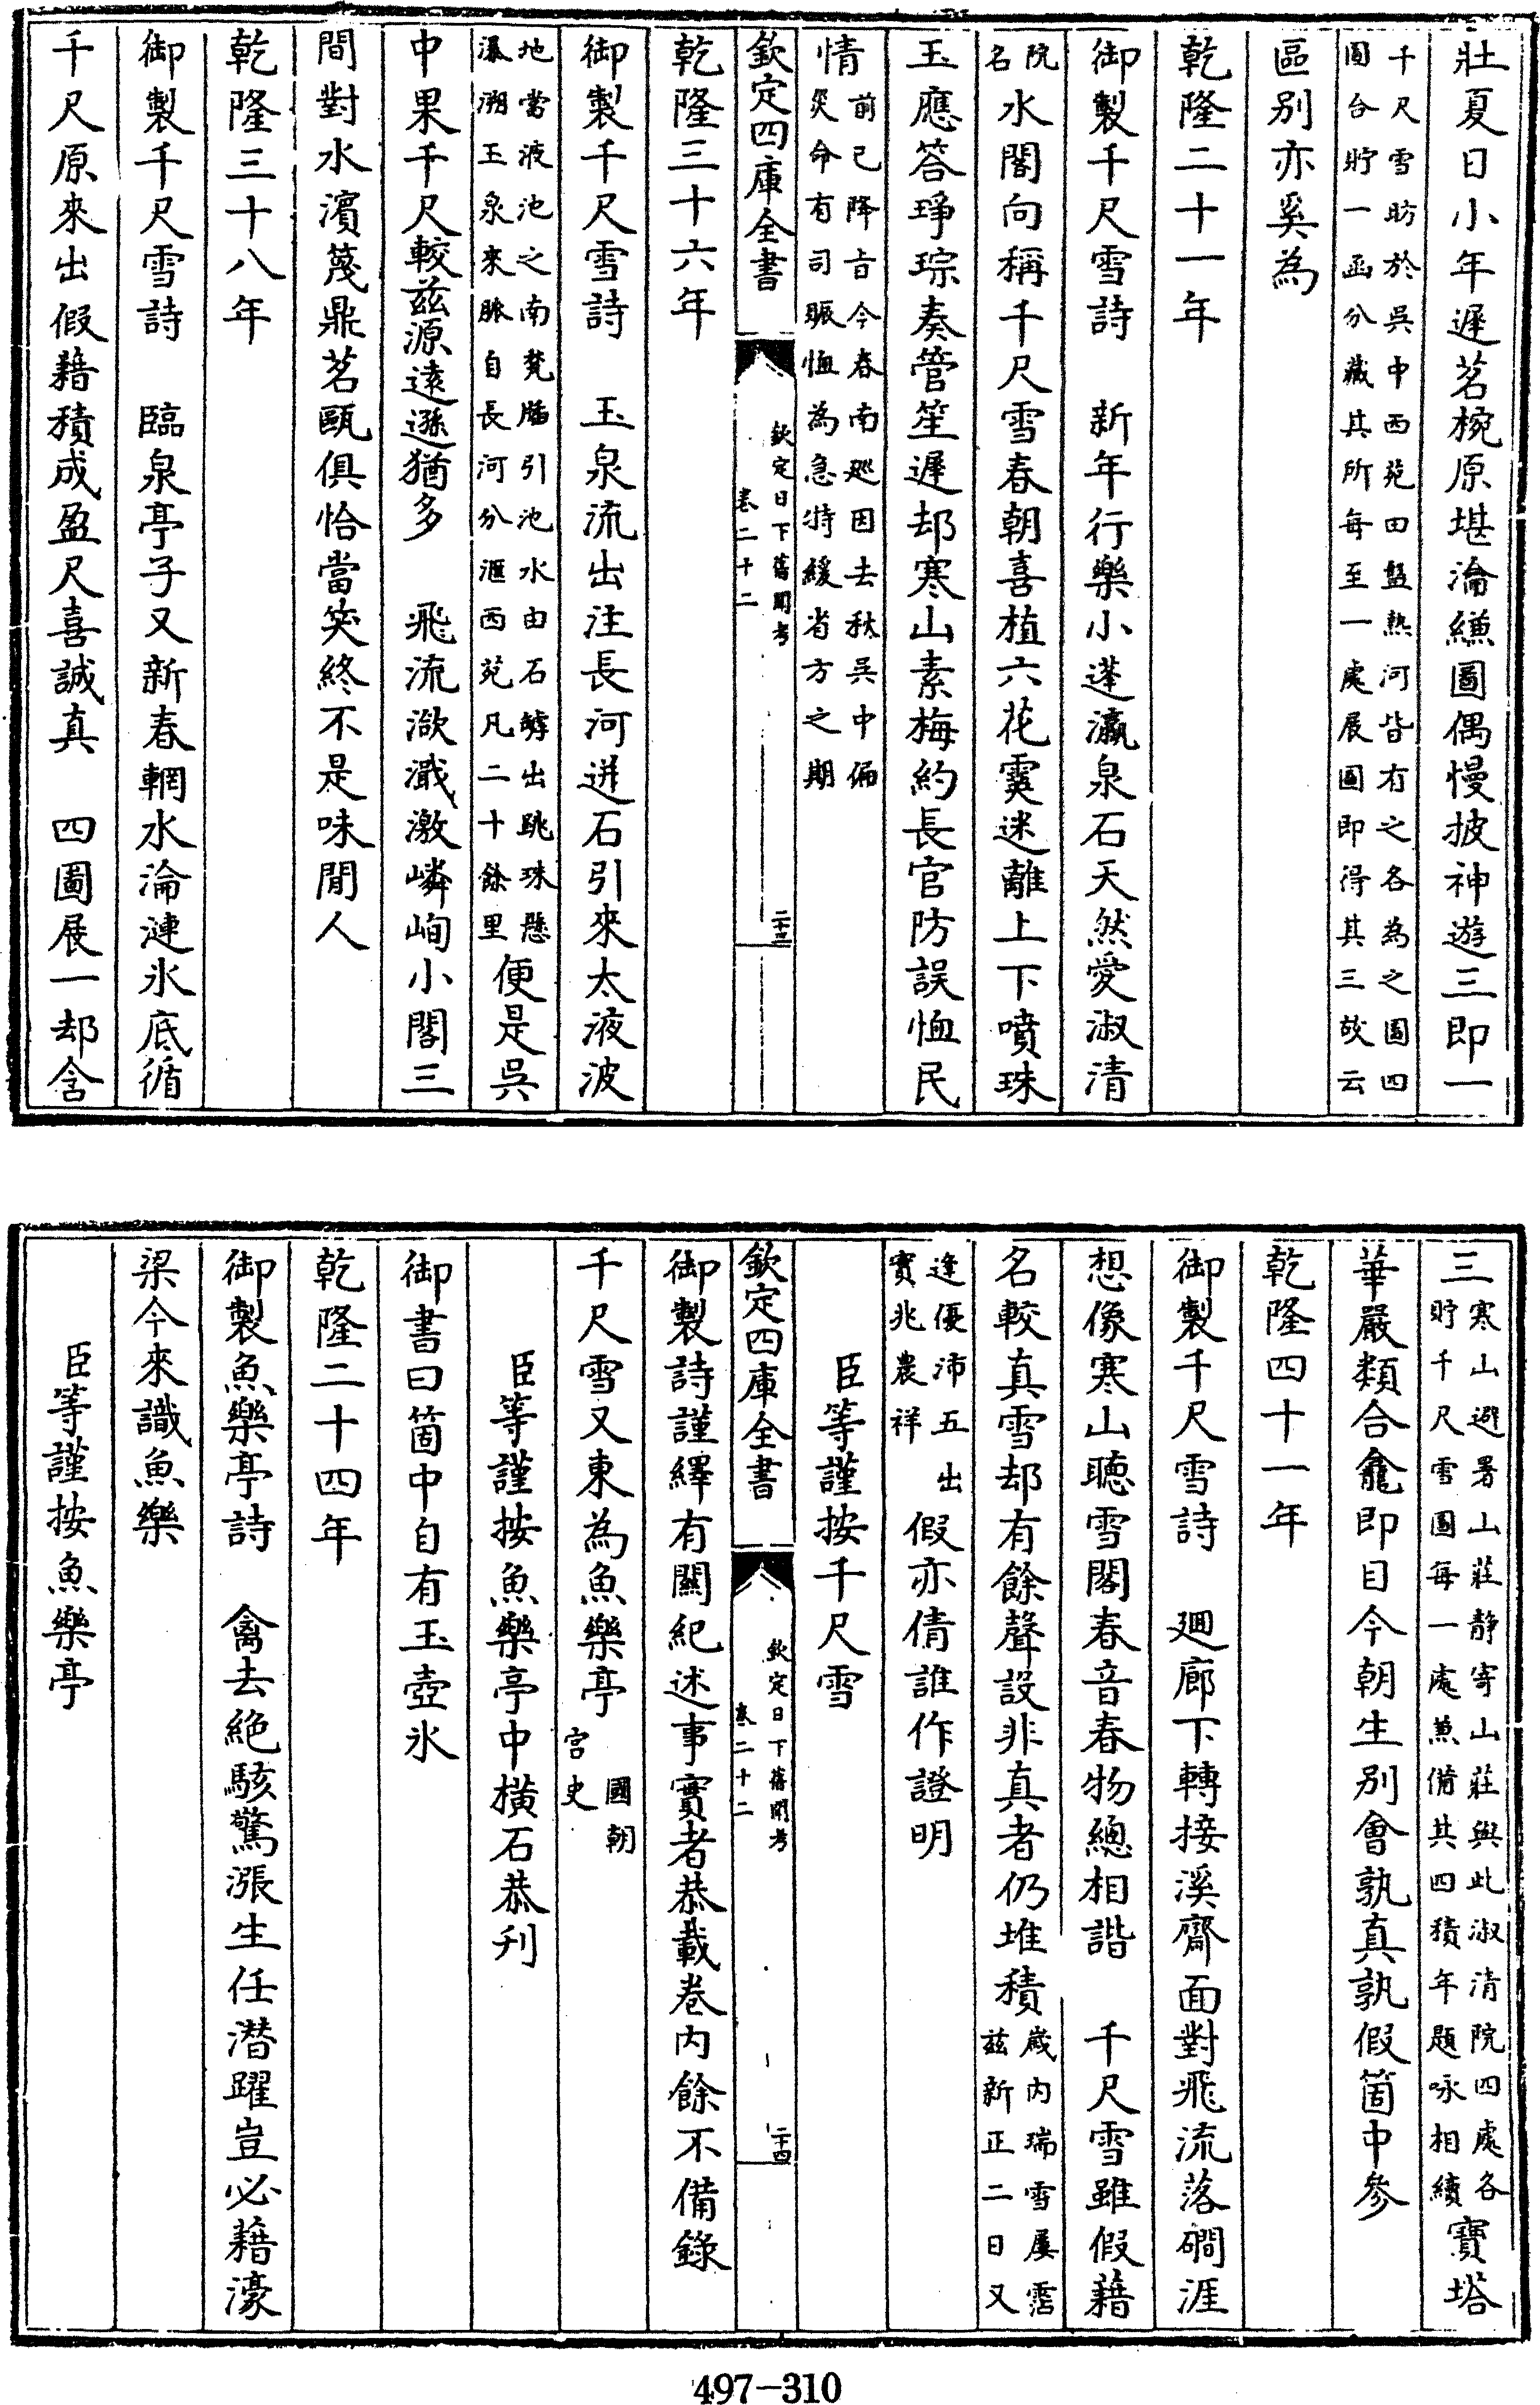 壯夏日小年遲茗椀原堪瀹縑圖偶慢披神遊三即一
千尺雪昉於吳中西苑田盤熱河皆有之各為之圖四
圖合貯一函分藏其所每至一處展圖即得其三故云
區别亦奚為
乾隆二十一年
御製千尺雪詩 新年行樂小蓬瀛泉石天然愛淑清
院
名
水閣向稱千尺雪春朝喜植六花霙迷離上下噴珠
玉應答琤琮奏管笙遲却寒山素梅約長官防誤恤民
情
前已降旨今春南廵因去秋吳中偏
災命有司賑恤為急特緩省方之期
欽定四庫全書
欽定日下舊聞考
卷二十二
二十三
乾隆三十六年
御製千尺雪詩 玉泉流出注長河迸石引來太液波
地當液池之南甃牐引池水由石罅出跳珠懸
瀑溯玉泉來脈自長河分滙西苑凡二十餘里
便是吳
中果千尺較茲源遠遜猶多 飛流潨濈激嶙峋小閣三
間對水濵篾鼎茗甌俱恰當笑終不是味閒人
乾隆三十八年
御製千尺雪詩 臨泉亭子又新春輞水淪漣氷底循
千尺原來出假藉積成盈尺喜誠真 四圖展一却含
三
寒山避暑山莊静寄山莊與此淑清院四處各
貯千尺雪圖每一處兼備其四積年題咏相續
寶塔
華嚴類合龕即目今朝生别會孰真孰假箇中參
乾隆四十一年
御製千尺雪詩 廻廊下轉接溪齋面對飛流落磵涯
想像寒山聽雪閣春音春物總相諧 千尺雪雖假藉
名較真雪却有餘聲設非真者仍堆積
歲内瑞雪屢霑
兹新正二日又
逢優沛五出
實兆農祥
假亦倩誰作證明
臣等謹按千尺雪
欽定四庫全書
欽定日下舊聞考
卷二十二
二十四
御製詩謹繹有關紀述事實者恭載卷内餘不備錄
千尺雪又東為魚樂亭
國朝
宮史
臣等謹按魚樂亭中橫石恭刋
御書曰箇中自有玉壺氷
乾隆二十四年
御製魚樂亭詩 禽去絶駭驚漲生任潛躍豈必藉濠
梁今來識魚樂
臣等謹按魚樂亭
497-310